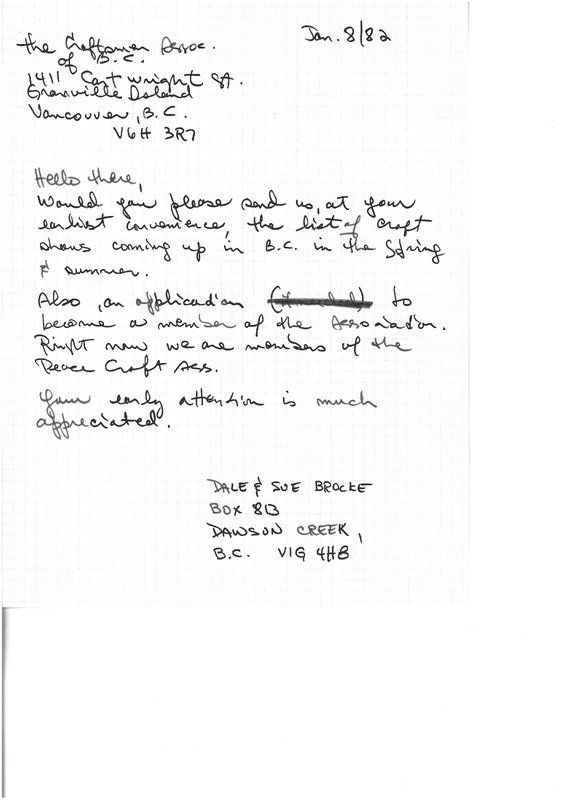 Jan. 8/82
the Craftsmen Assoc.
of B.C.
1411 Cartwright St.
Granville Island
Vancouver, B.C.
V6H 3R7
Hello there,
Would you please send us, at your
earliest convenience, the list of craft
shows coming up in B.C. in the Spring
& summer.
Also, an application to
become a member of the Association.
Right now we are members of the
Peace Craft Ass.
Your early attention is much
appreciated.
DALE & SUE BROCKE
BOX 813
DAWSON CREEK,
B.C. V1G 4H8